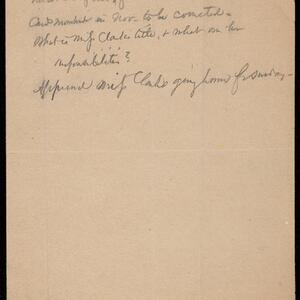 Amendment in Nov - to be corrected -
What is Miss Clarke's title, & what are her
responsibilities?
Approved Miss Clarke going home for Sunday -